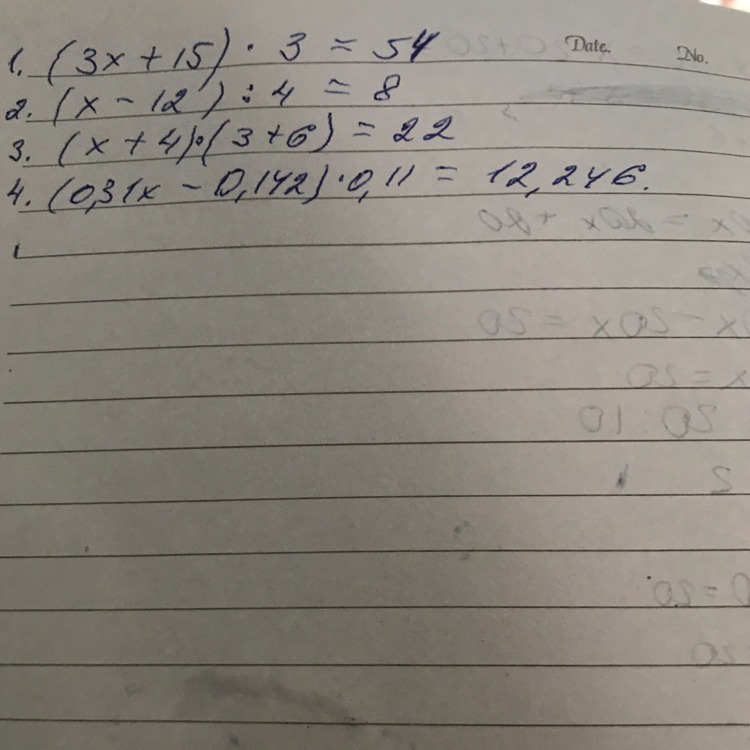 Date. No.
1. (3x + 15) · 3 = 54
2. (x - 12) : 4 = 8
3. (x + 4)·(3 + 6) = 22
4. (0,31x - 0,142)·0,11 = 12,246.